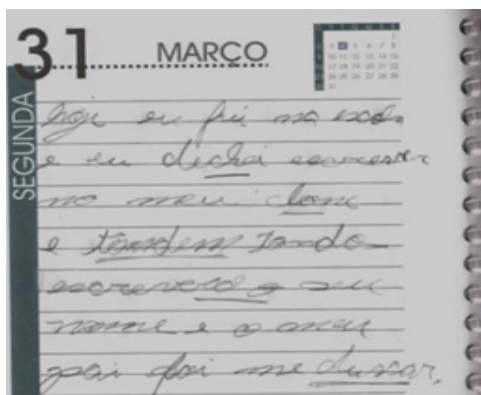 31 MARÇO
SEGUNDA
hoje eu fui na escola
e eu dechei escreser
no meu clone
e tandem Jando
escrevendo o seu
nome e o meu
pai foi me buscar.